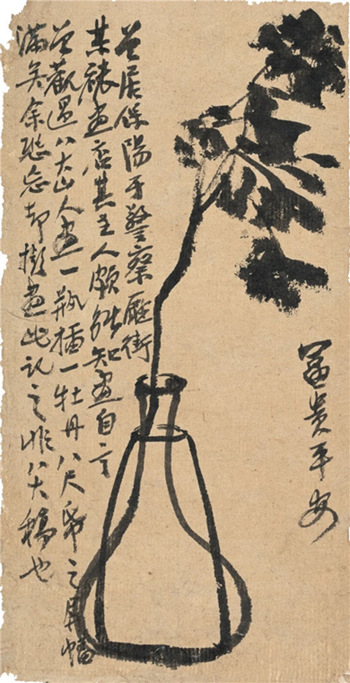 富貴平安
曾居保陽于警察廳街
某裱畫店其主人頗能知畫自言
曾觀過八大山人畫一瓶插一牡丹八尺帋之幅
滿矣余恐忘却擬畫此記之非八大稿也